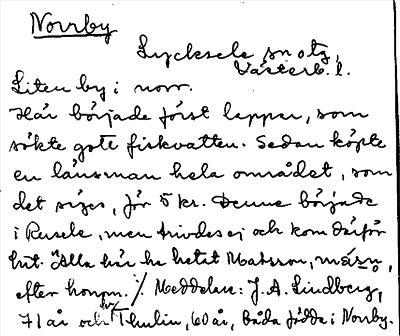 Norrby
Lycksele sn o tg,
Västerb. l.
Liten by i norr.
Här började först lappar, som
sökte gott fiskvatten. Sedan köpte
en länsman hela området, som
det säges, för 5 kr. Denne började
i Rusele, men trivdes ej och kom därför
hit. Alla här ha hetat Matsson,
efter honom. Meddelare: J. A. Lindberg,
71 år och Thulin, 60 år, båda födda i Norrby.